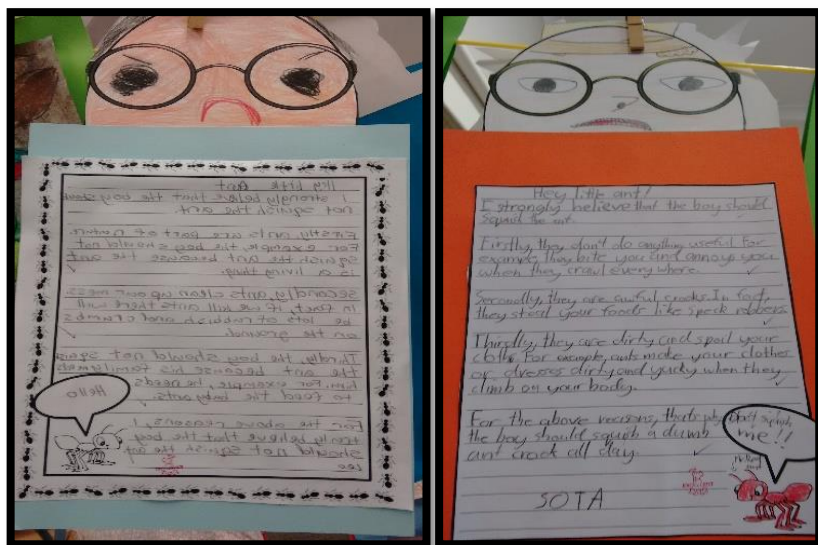 Hey Little Ant
I strongly believe that the boy should
not squish the ant.
Firstly, ants are part of nature.
For example, the boy should not
squish the ant because the ant
is a living thing.
Secondly, ants clean up our mess.
In fact, if we kill ants there will
be lots of rubbish and crumbs
on the ground.
Thirdly, the boy should not squish
the ant because his family needs
him. For example, he needs
to feed the baby ants.
For the above reasons, I
truly believe that the boy
should not squish the ant
Lee
Hello
Hey little ant!
I strongly believe that the boy should
squish the ant.
Firstly, they don't do anything useful. For
example they bite you and annoys you
when they crawl everywhere.
Secondly, they are awful crooks. In fact,
they steal your foods like speck robbers.
Thirdly, they are dirty and spoil your
cloths. For example, ants make your clothes
or dresses dirty and yucky when they
climb on your body.
For the above reasons, thats why
the boy should squish a dumb
ant crook all day.
SOTA
Don't squish
me!!